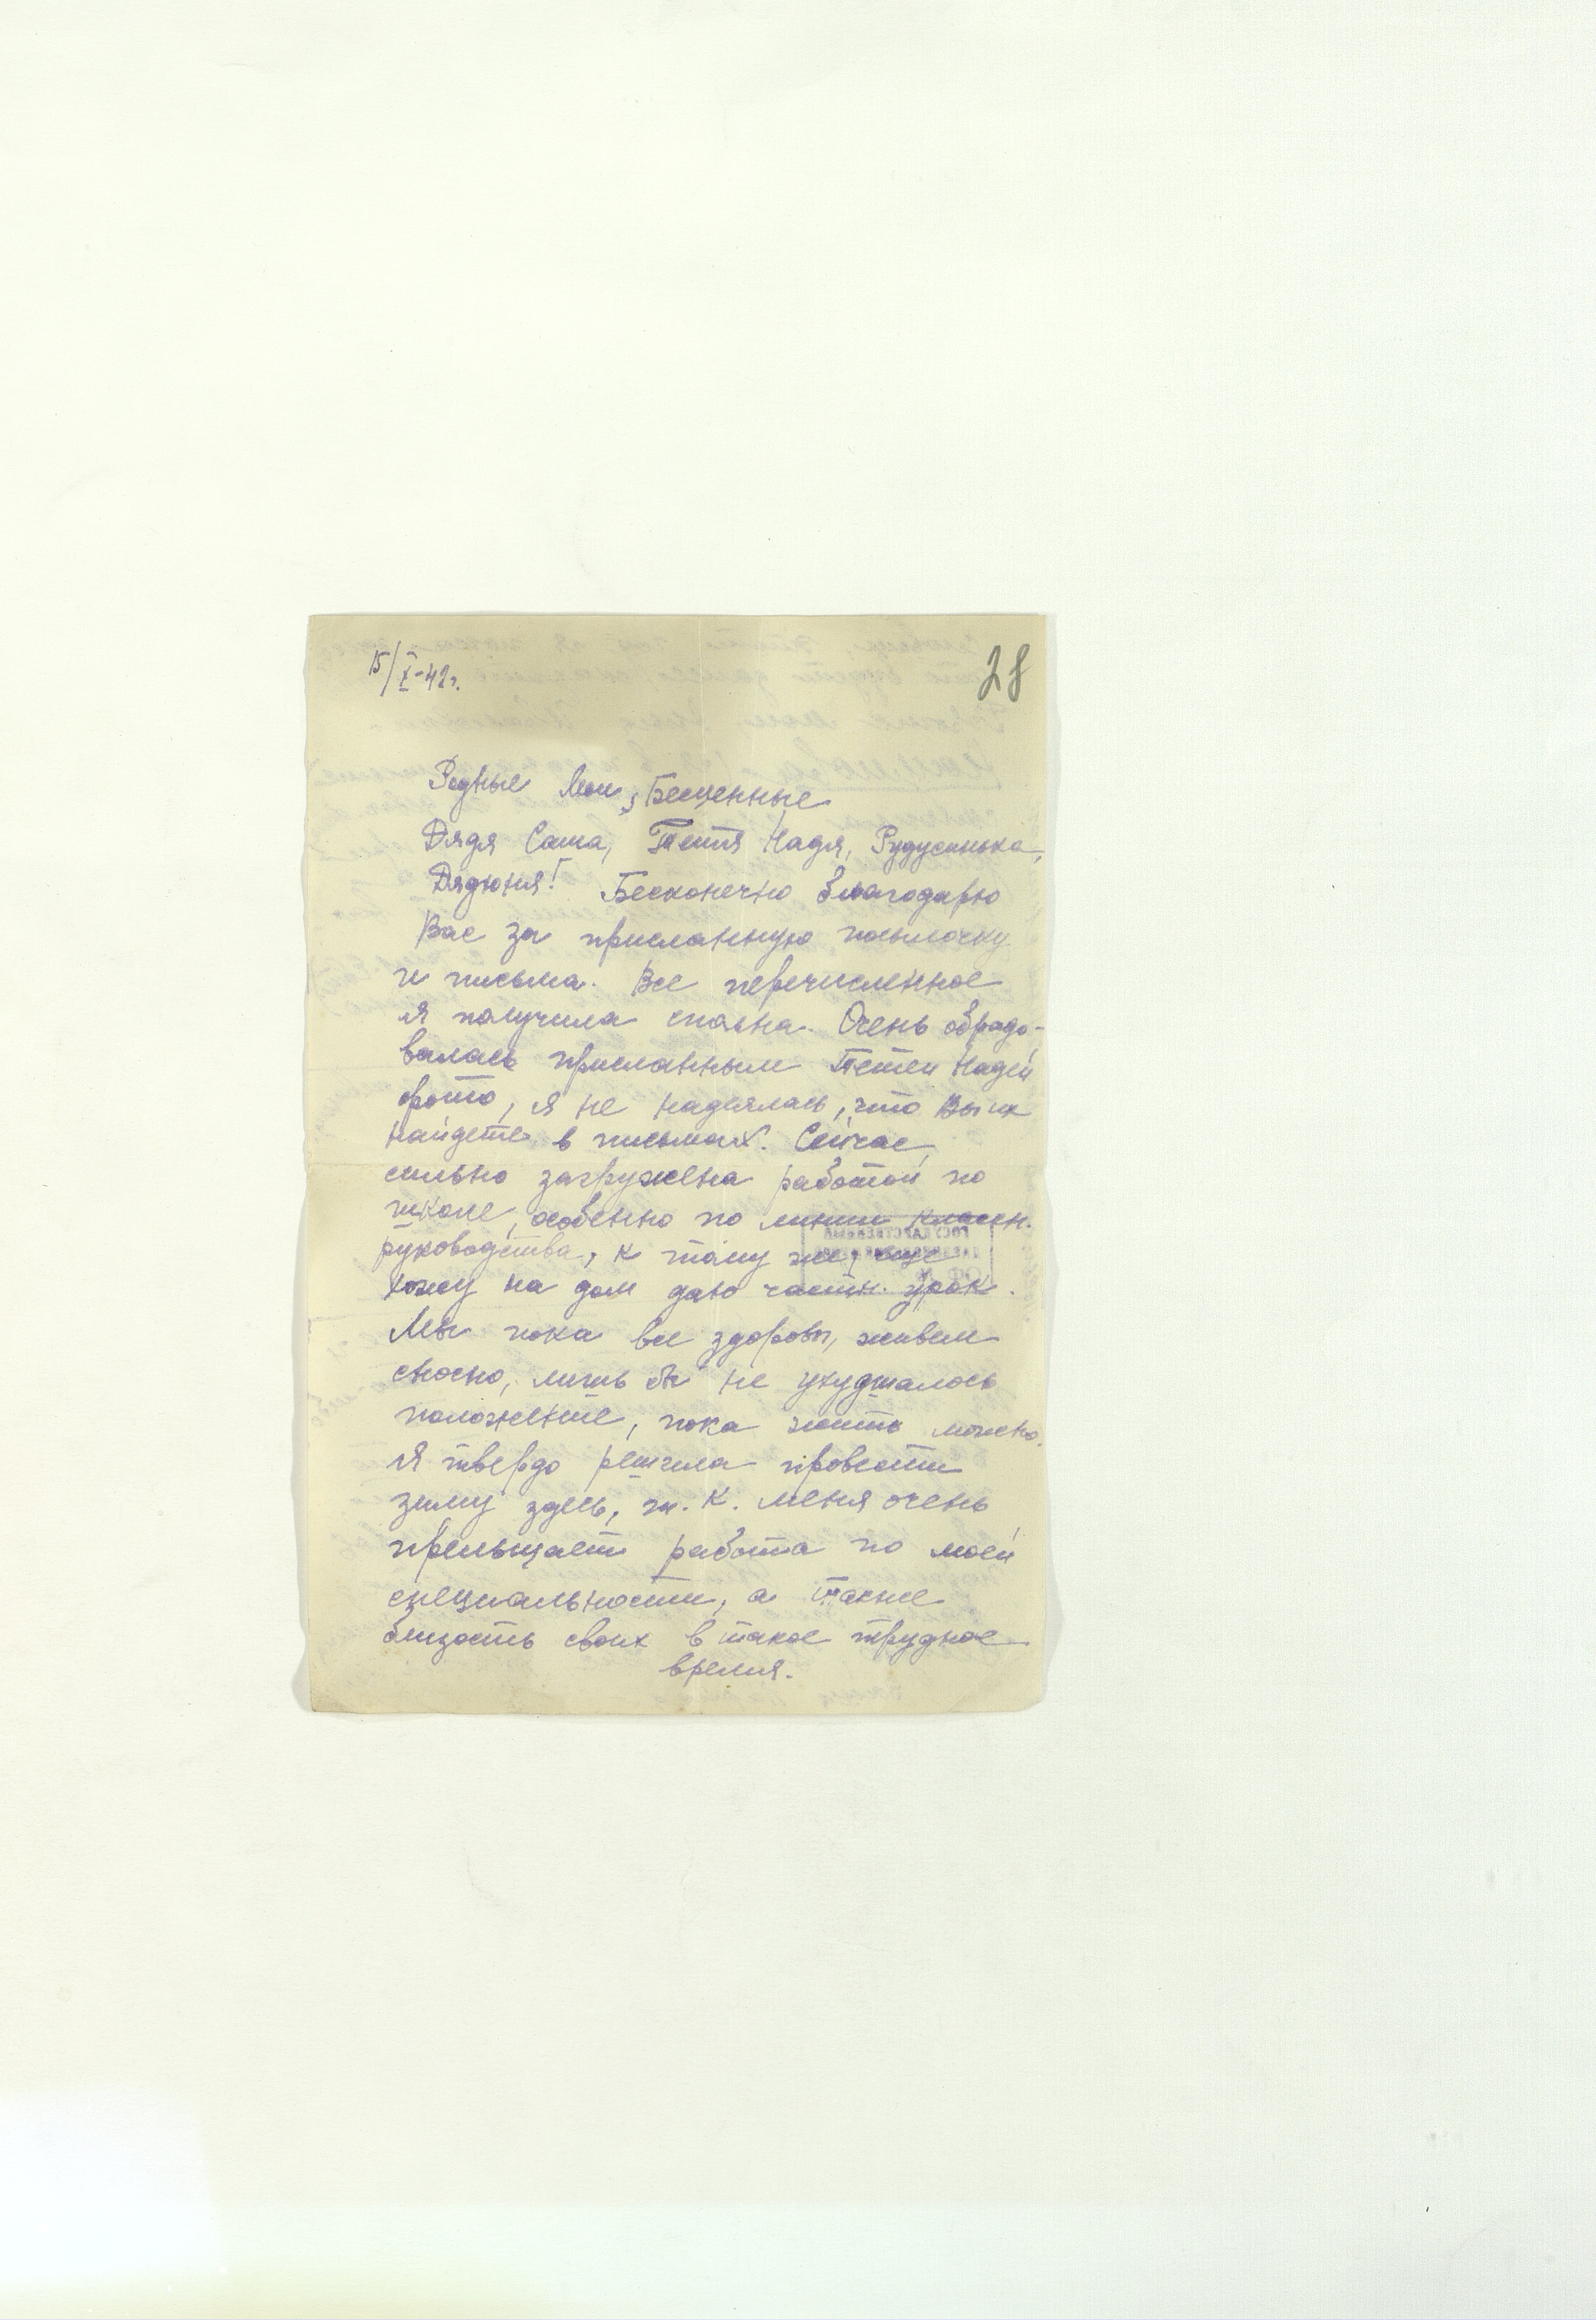 15/X-42г.
28
Родные Мои, Бесценные
Дядя Саша, Тетя Надя, Рудусинька,
Дядюня! Бесконечно благодарю
Вас за присланную посылочку
и письма. Все перечисленное
я получила сполна. Очень обрадо-
валась присланным Тетей Надей
фото, я не надеялась, что Вы их
найдете в письмах. Сейчас
сильно загружена работой по
школе, особенно по линии классн.
руководства, к тому же, еще
хожу на дом даю частн. урок.
Мы пока все здоровы, живем
сносно, лишь бы не ухудшалось
положение, пока жить можно.
Я твердо решила провести
зиму здесь, т. к. меня очень
прельщает работа по моей
специальности, а также
близость своих в такое трудное
время.